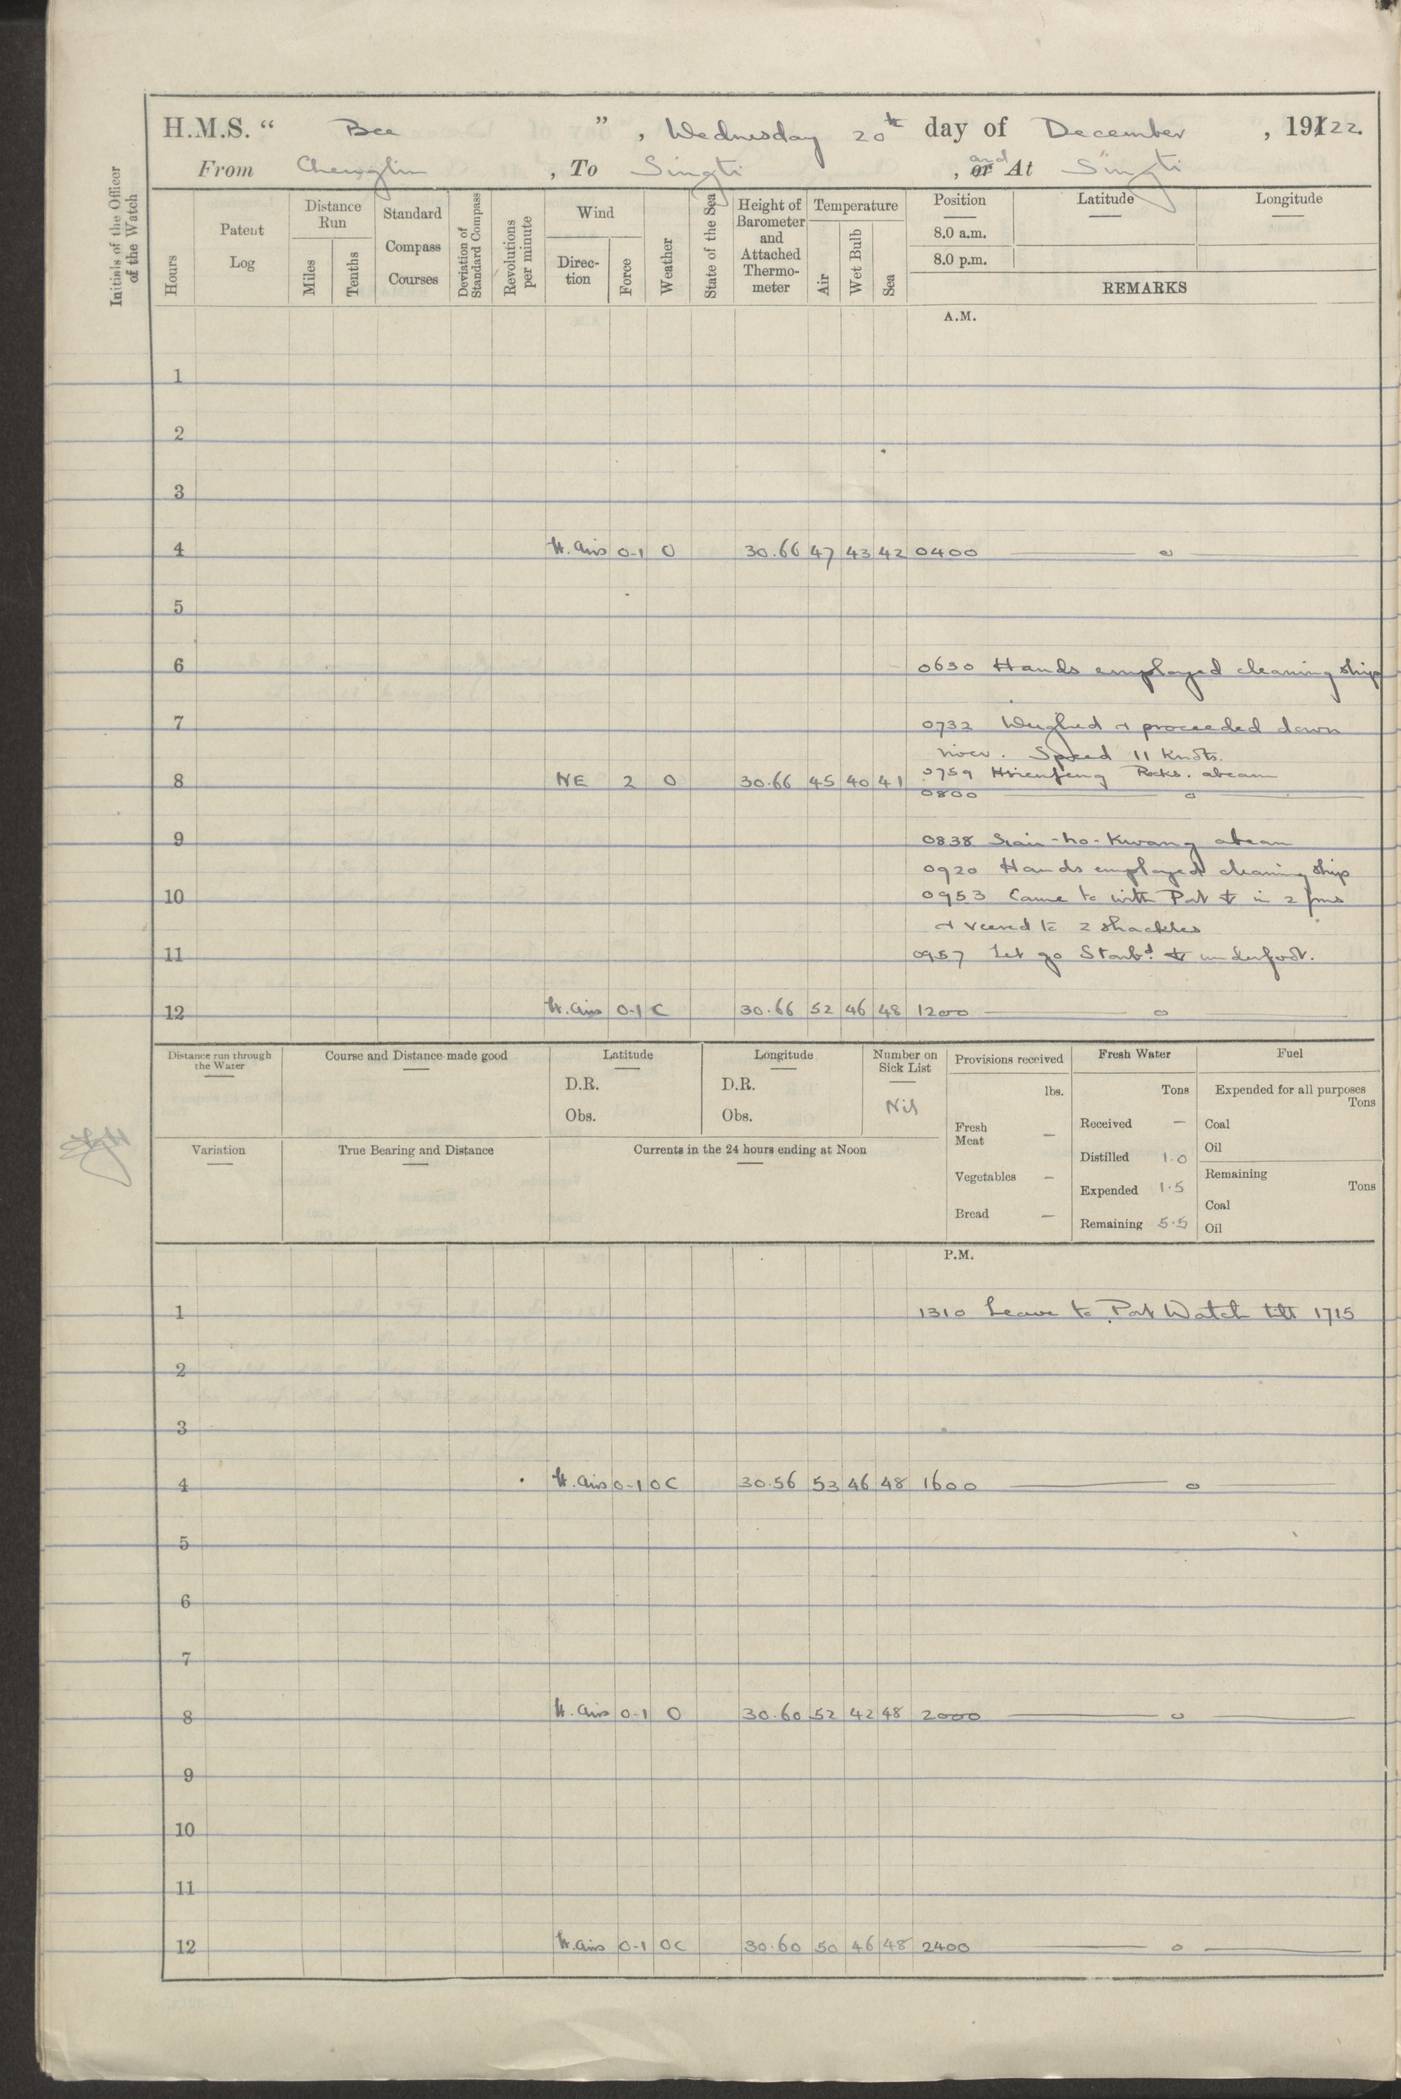 H.M.S. “ Bee ” , Wednesday 20th day of December , 1922.
From Chenglin , To Singti , and At Singti
Initials of the Officer of the Watch
Hours
Patent Log
Distance Run
Miles
Tenths
Standard Compass Courses
Deviation of Standard Compass
Revolutions per minute
Wind
Direc- tion
Force
Weather
State of the Sea
Height of Barometer and Attached Thermo- meter
Temperature
Air
Wet Bulb
Sea
Position
8.0 a.m.
8.0 p.m.
Latitude
Longitude
REMARKS
A.M.
1
2
3
4 lt. airs 0-1 O 30.66 47 43 42 0400 — o —
5
6 0630 Hands employed cleaning ship
7 0732 Weighed & proceeded down
river. Speed 11 Knots.
0759 Hsienfeng Rocks. abeam
8 NE 2 O 30.66 45 40 41
0800 — o —
9 0838 -ho-Kwang abeam
0920 Hands employed cleaning ship
10 0953 Came to with Port ⚓ in 2 fms
& veered to 2 shackles
11 0957 Let go Starbd. ⚓ underfoot.
12 lt. airs 0-1 C 30.66 52 46 48 1200 — o —
Distance run through the Water
Course and Distance made good
Latitude
D.R.
Obs.
Longitude
D.R.
Obs.
Number on Sick List
Nil
Variation
True Bearing and Distance
Currents in the 24 hours ending at Noon
Provisions received
lbs.
Fresh Meat —
Vegetables —
Bread —
Fresh Water
Tons
Received —
Distilled 1.0
Expended 1.5
Remaining 5.5
Fuel
Expended for all purposes
Tons
Coal
Oil
Remaining
Tons
Coal
Oil
P.M.
1 1310 Leave to Port Watch till 1715
2
3
4 lt. airs 0-1 OC 30.56 53 46 48 1600 — o —
5
6
7
8 lt. airs 0-1 O 30.60 52 42 48 2000 — o —
9
10
11
12 lt. airs 0-1 OC 30.60 50 46 48 2400 — o —